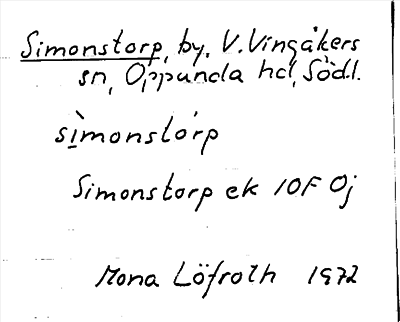 Simonstorp, by. V. Vingåkers
sn, Oppunda hd, Södl.
sìmonstórp
Simonstorp ek 10F Oj
Mona Löfroth 1972